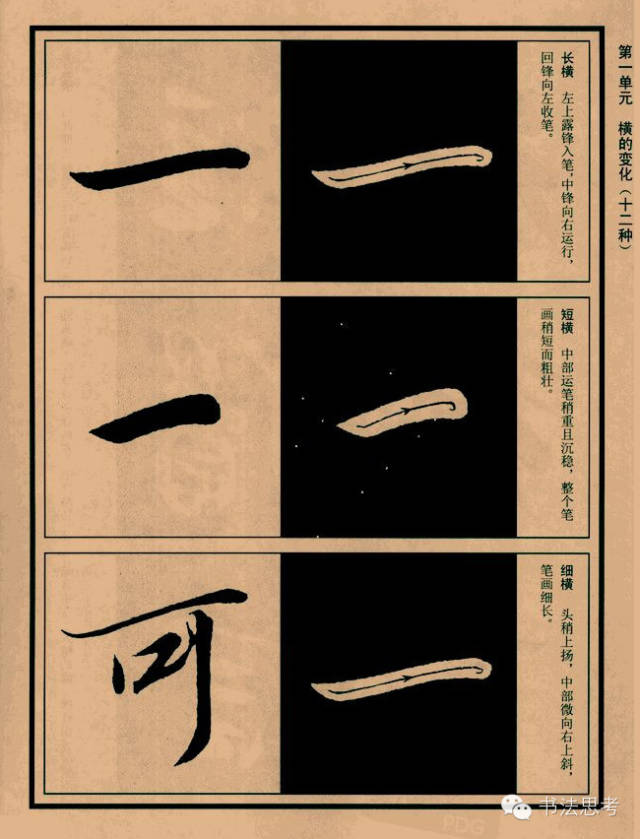 第一单元　横的变化（十二种）
长横　左上露锋入笔，中锋向右运行，
回锋向左收笔。
一
短横　中部运笔稍重且沉稳，整个笔
画稍短而粗壮。
一
细横　头稍上扬，中部微向右上斜，
笔画细长。
可
书法思考